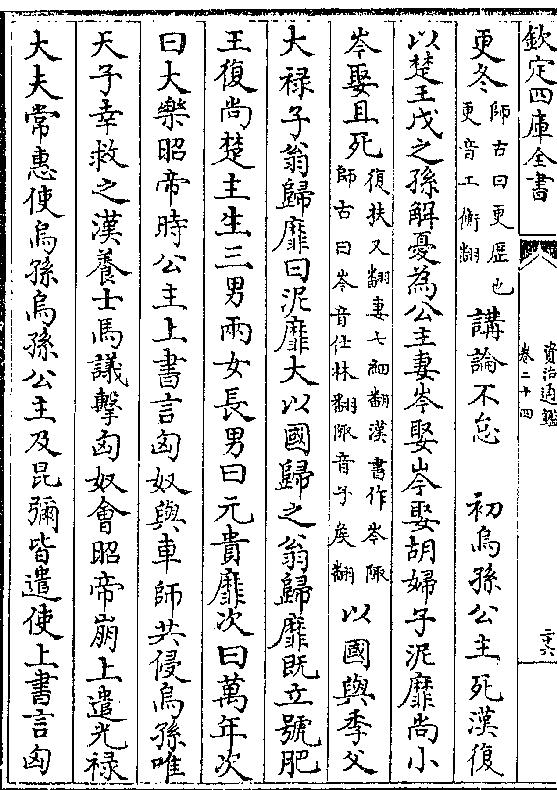 欽定四庫全書
資治通鑑
卷二十四
二十六
更冬師古曰更歴也更音工衡翻講論不怠　初烏孫公主死漢復
以楚王戊之孫解憂為公主妻岑娶岑娶胡婦子泥靡尚小
岑娶且死復扶又翻妻七細翻漢書作岑陬師古曰岑音仕林翻陬音子矦翻以國與季父
大禄子翁歸靡曰泥靡大以國歸之翁歸靡既立號肥
王復尚楚主生三男兩女長男曰元貴靡次曰萬年次
曰大樂昭帝時公主上書言匈奴與車師共侵烏孫唯
天子幸救之漢養士馬議擊匈奴會昭帝崩上遣光禄
大夫常惠使烏孫烏孫公主及昆彌皆遣使上書言匈